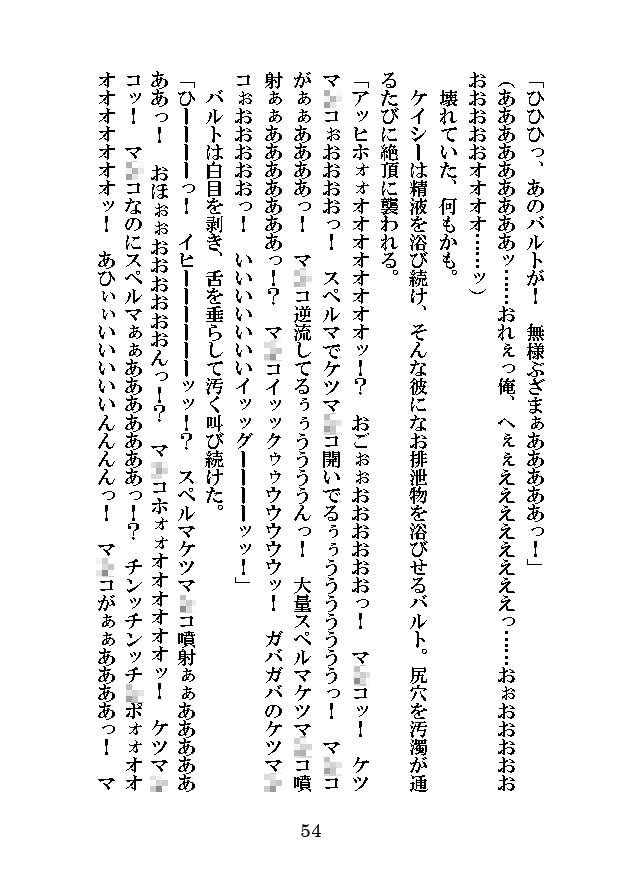 「ひひひっ、あのバルトが！　無様ぶざまぁあああああっ！」
（あああああああああッ……おれぇっ俺、へぇぇえええええええっ……おぉおおおおお
おおおおおオオオオ……ッ）
壊れていた、何もかも。
ケイシーは精液を浴び続け、そんな彼になお排泄物を浴びせるバルト。尻穴を汚濁が通
るたびに絶頂に襲われる。
「アッヒホォォオオオオオオオオオッ！？　おごぉぉおおおおおおおっ！　マコッ！　ケツ
マコぉおおおおっ！　スペルマでケツマコ開いでるぅぅうううううううっ！　マコ
がぁぁああああっ！　マコ逆流してるぅぅうううううんっ！　大量スペルマケツマコ噴
射ぁぁああああああああっ！？　マコイッックゥゥウウウウウッ！　ガバガバのケツマ
コぉおおおおおおっ！　いいいいいいいイッッグーーーーーッッ！」
バルトは白目を剥き、舌を垂らして汚く叫び続けた。
「ひーーーーーっ！　イヒーーーーーーーッッ！？　スペルマケツマコ噴射ぁぁああああああ
ああっ！　おほぉぉおおおおおおおんっ！？　マコホォォオオオオオオオッ！　ケツマ
コッ！　マコなのにスペルマぁぁああああああああっ！？　チンッチンッチポォォオオ
オオオオオオオオッ！　あひぃぃいいいいいいんんんんっ！　マコがぁぁああああっ！　マ
54